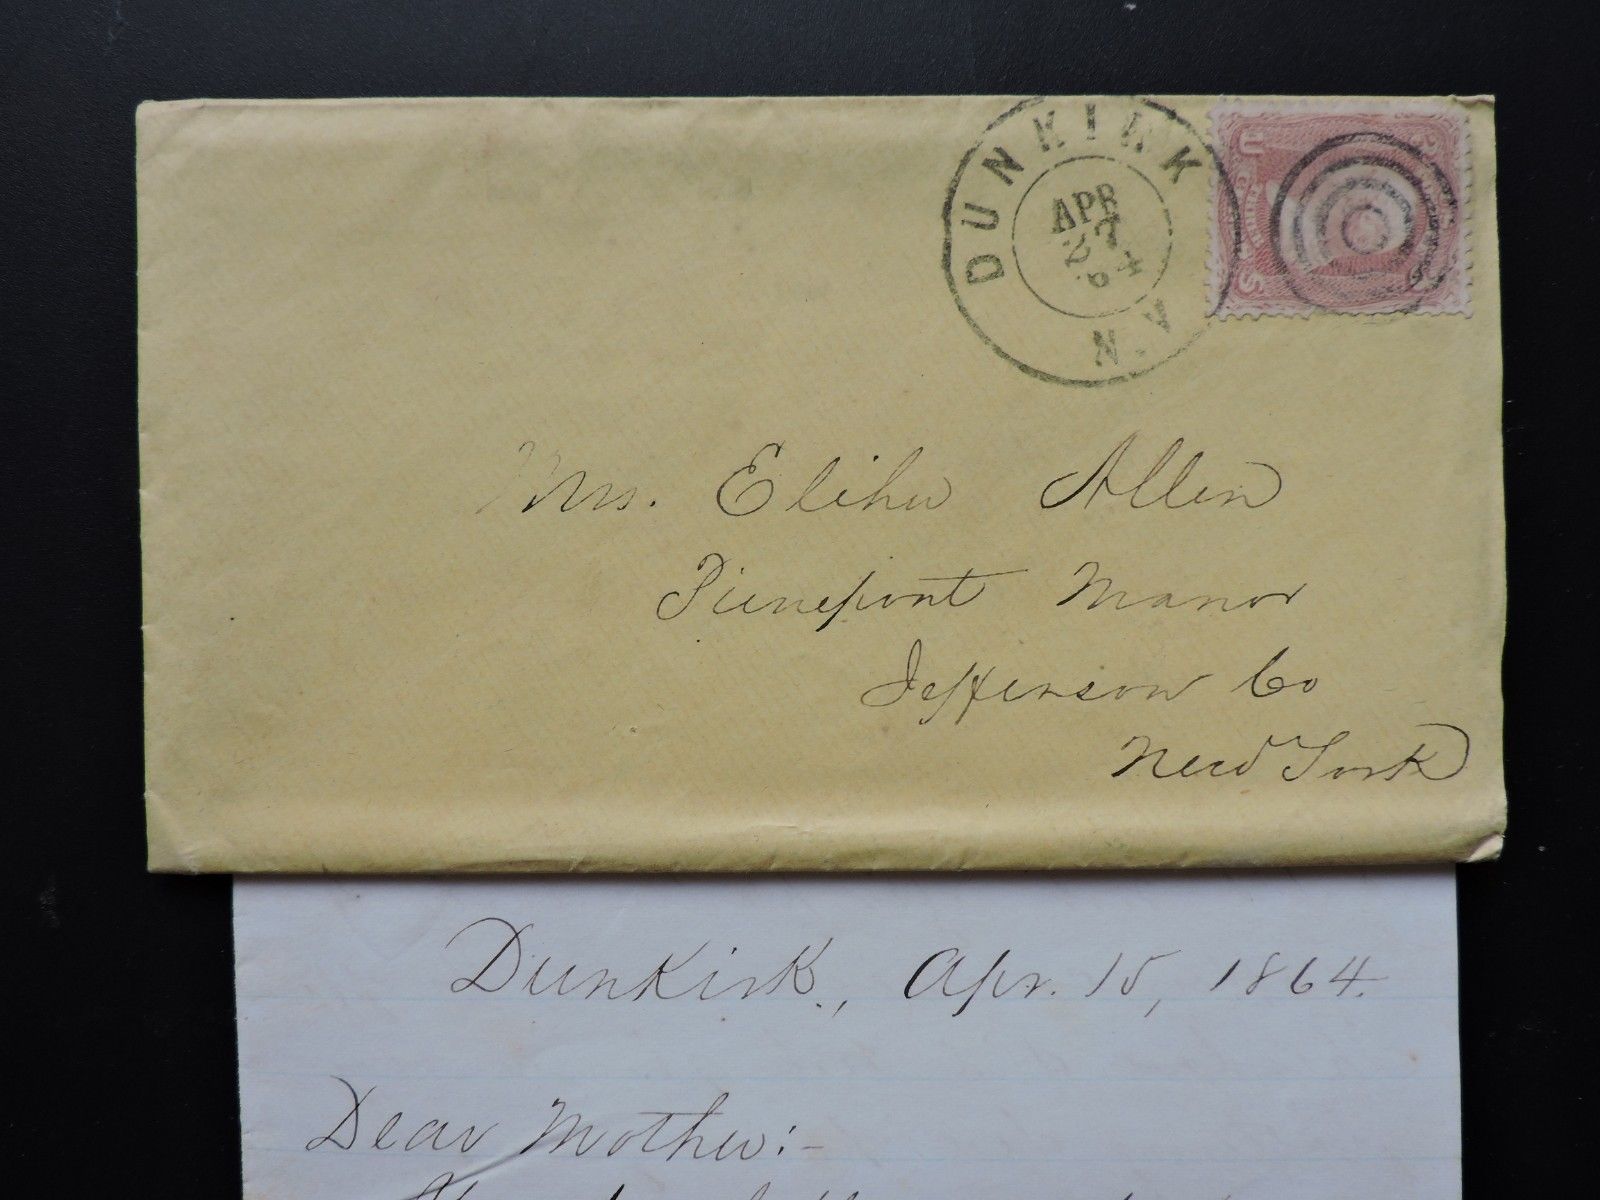 DUNKIRK
APR
27
64
N.Y.
U S
Mrs. Elihu Allen
Pierrepont Manor
Jefferson Co
New York
Dunkirk, Apr. 15, 1864.
Dear Mother:-